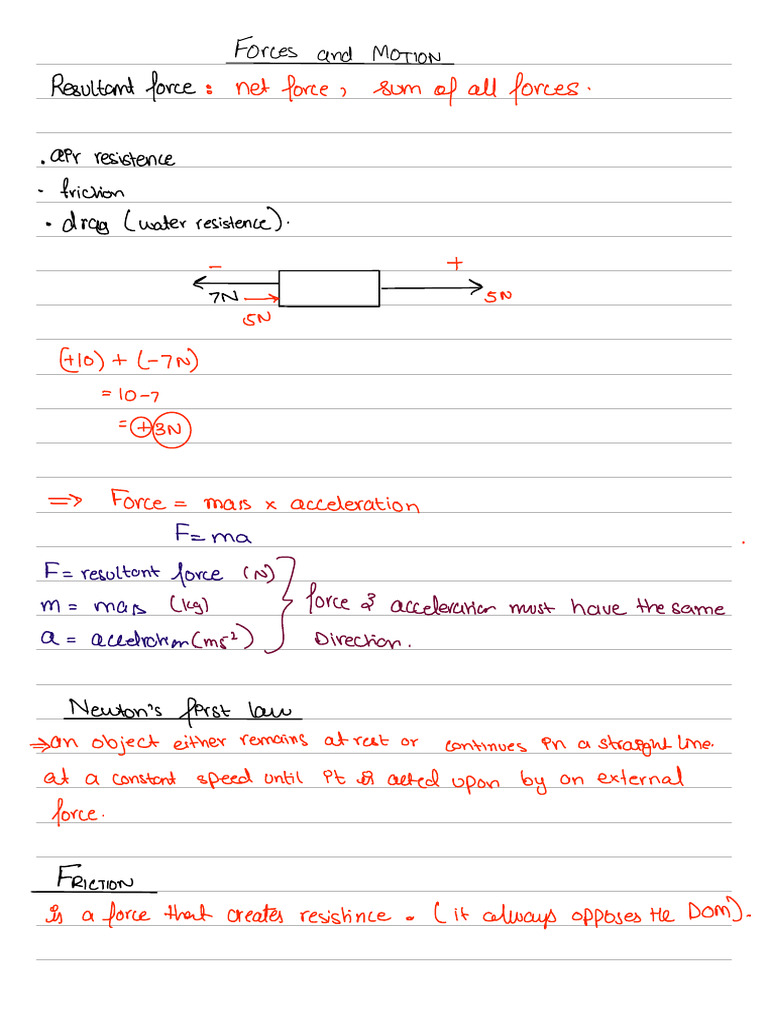 Forces and MOTION
Resultant force: net force, sum of all forces.
. air resistence
- friction
• drag (water resistence).
- +
7N 5N
5N
(+10) + (-7N)
= 10-7
= +3N
=> Force = mass x acceleration
F=ma
F= resultant force (N)
m = mass (kg) force & acceleration must have the same
a = accelration (ms⁻²) Direction.
Newton's first law
=> an object either remains at rest or continues in a straight line.
at a constant speed until it is acted upon by an external
force.
FRICTION
is a force that creates resistince. (it always opposes the DOM).